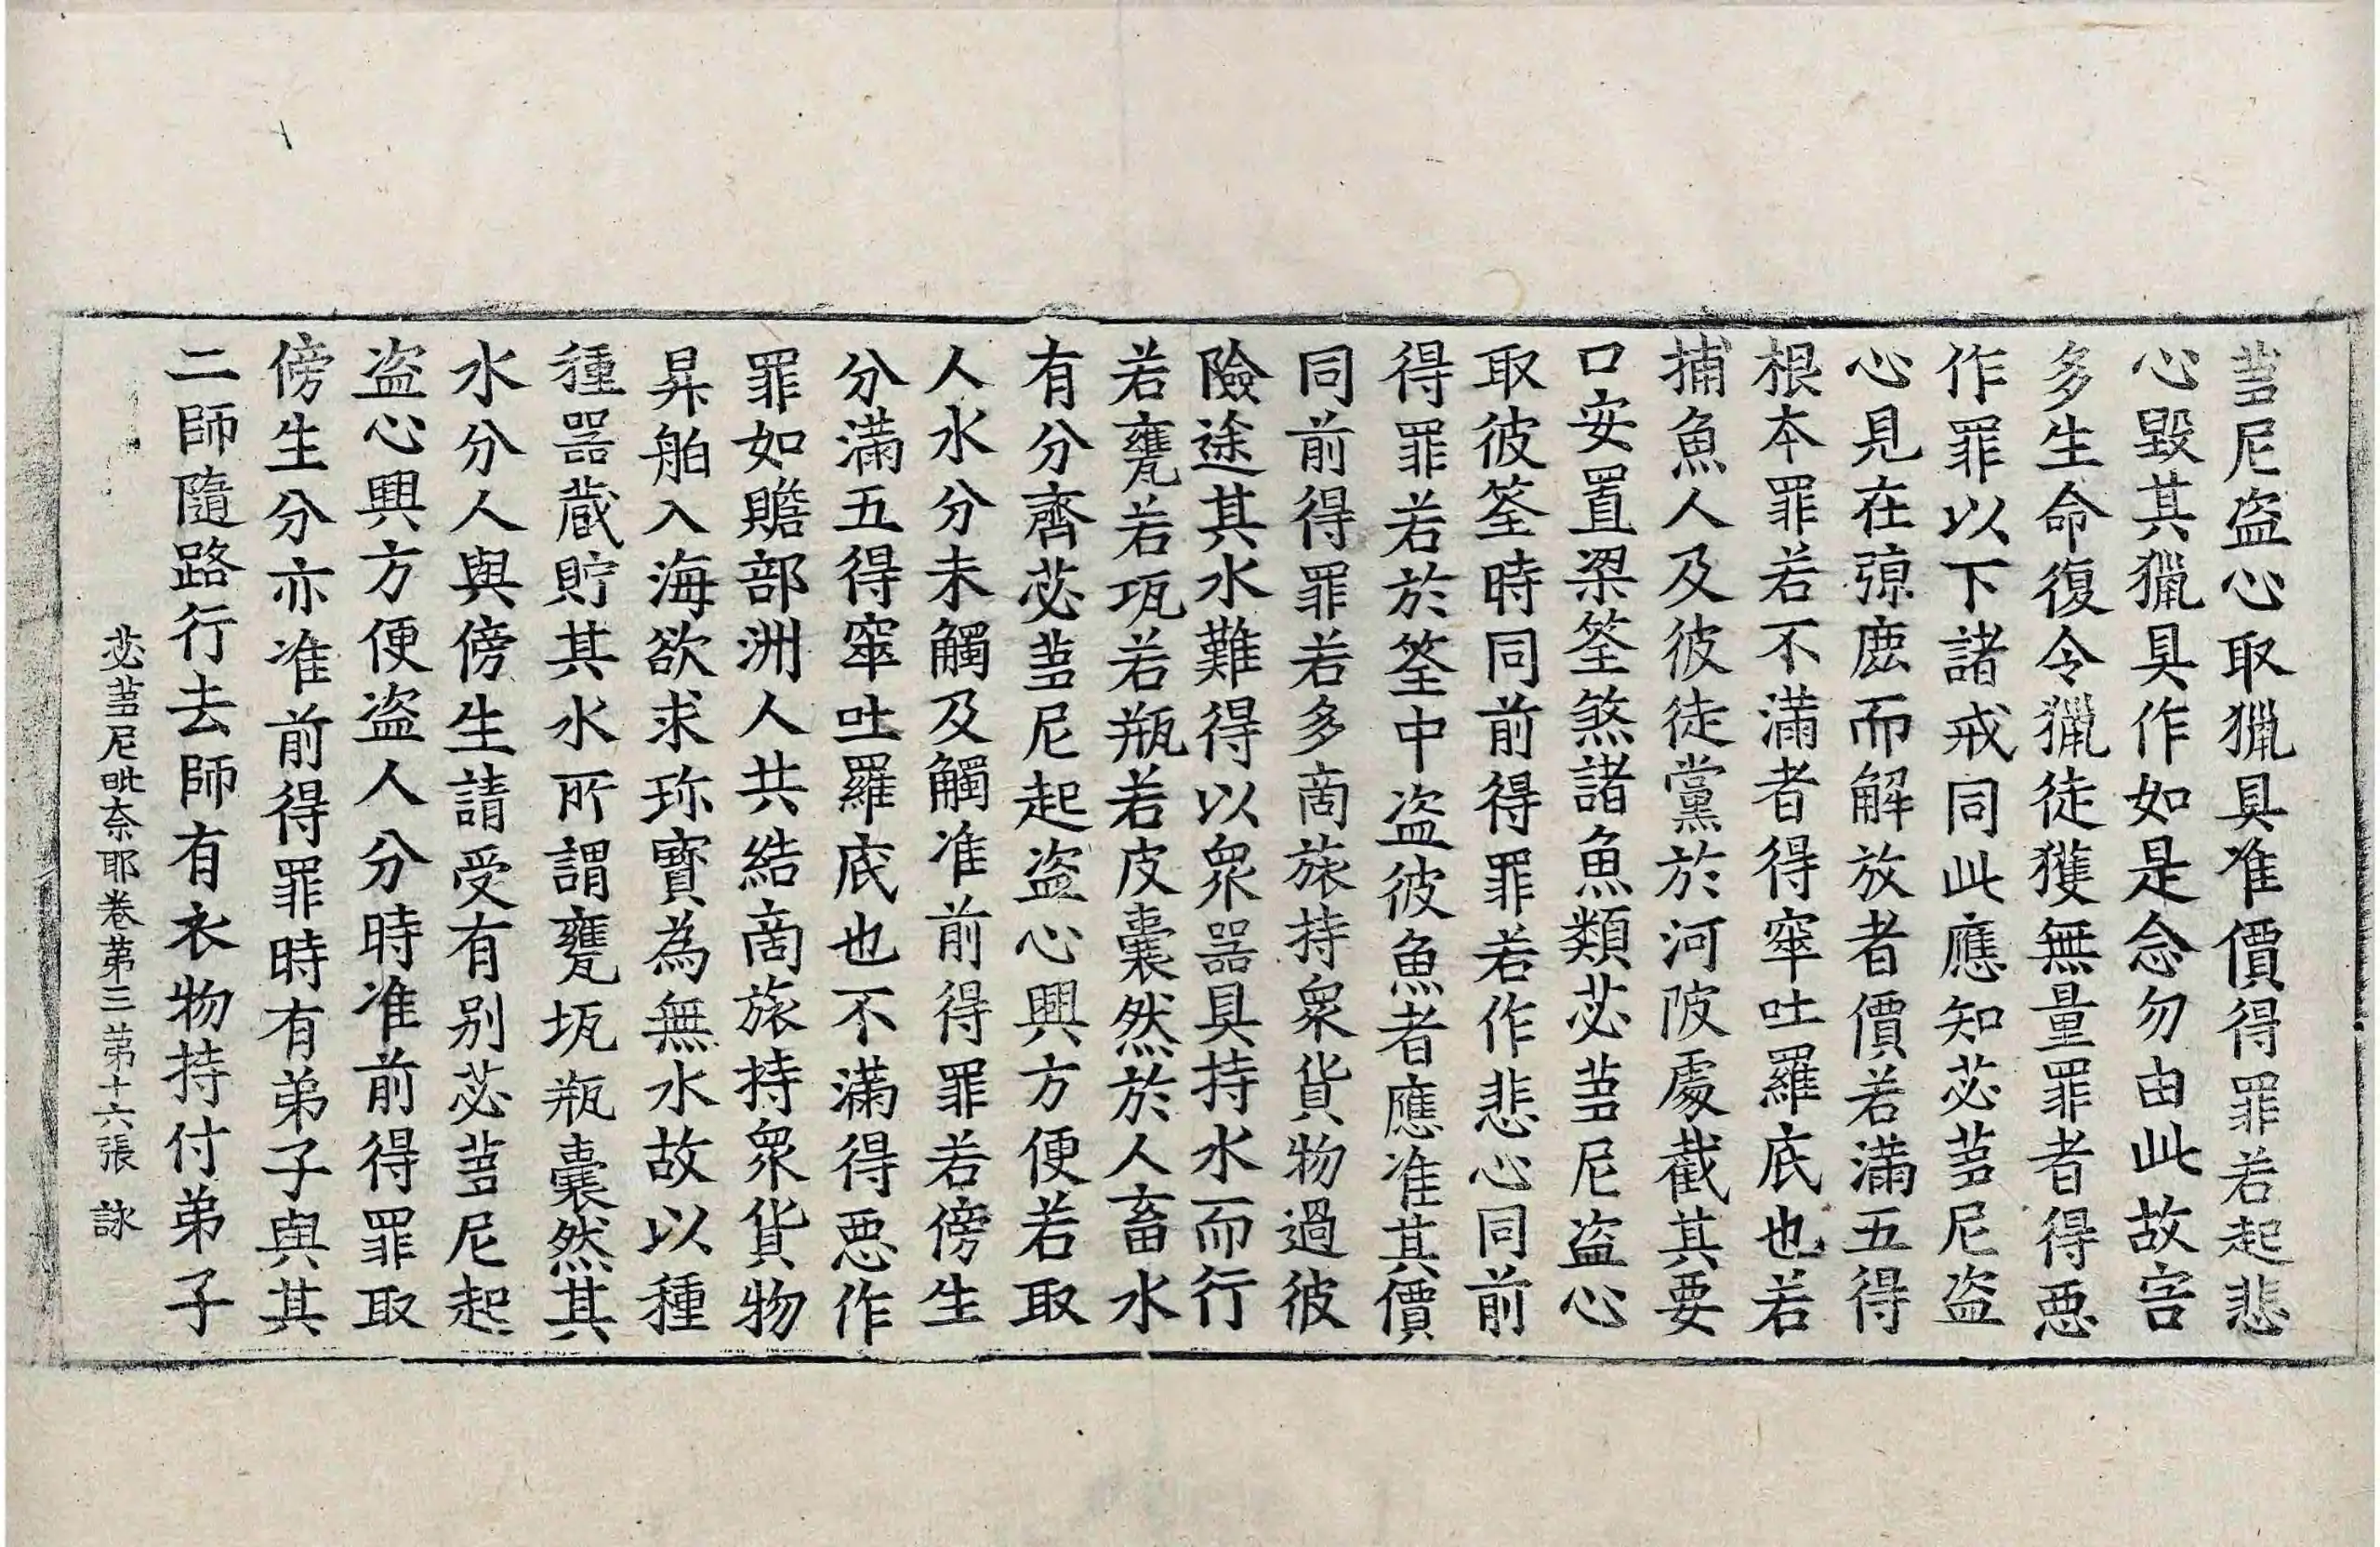 蒭尼盗心取獵具准價得罪若起悲
心毀其獵具作如是念勿由此故害
多生命復令獵徒獲無量罪者得惡
作罪以下諸戒同此應知苾蒭尼盗
心見在弶鹿而解放者價若滿五得
根本罪若不滿者得窣吐羅底也若
捕魚人及彼徒黨於河陂處截其要
口安置梁筌煞諸魚類苾蒭尼盗心
取彼筌時同前得罪若作悲心同前
得罪若於筌中盗彼魚者應准其價
同前得罪若多商旅持眾貨物過彼
險途其水難得以眾器具持水而行
若甕若瓨若瓶若皮囊然於人畜水
有分齊苾蒭尼起盗心興方便若取
人水分未觸及觸准前得罪若傍生
分滿五得窣吐羅底也不滿得惡作
罪如贍部洲人共結商旅持眾貨物
昇舶入海欲求珎寶為無水故以種
種器藏貯其水所謂甕瓨瓶囊然其
水分人與傍生請受有别苾蒭尼起
盗心興方便盗人分時准前得罪取
傍生分亦准前得罪時有弟子與其
二師隨路行去師有衣物持付弟子
苾蒭尼毗奈耶卷第三 第十六張 詠